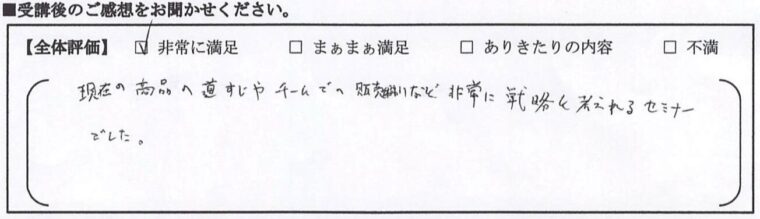 ■受講後のご感想をお聞かせください。
【全体評価】 ☑ 非常に満足 □ まぁまぁ満足 □ ありきたりの内容 □ 不満
現在の商品の道すじや チームでの 販売 など 非常に 戦略を考えれるセミナー
でした。